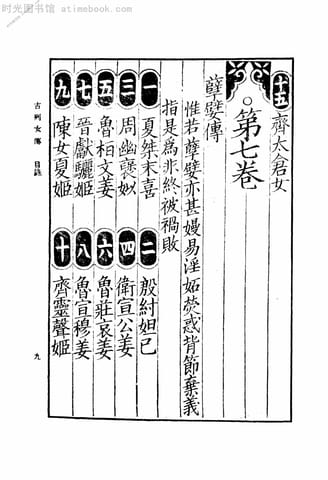 时光图书馆 - atimebook.com
十五 齊太倉女
第七卷
孽嬖傳
惟若孽嬖亦甚嫚易淫妬熒惑背節棄義
指是爲非終被禍敗
一 夏桀末喜 二 殷紂妲己
三 周幽褒姒 四 衛宣公姜
五 魯桓文姜 六 魯莊哀姜
七 晉獻驪姬 八 魯宣穆姜
九 陳女夏姬 十 齊靈聲姬
古列女傳 目錄
九